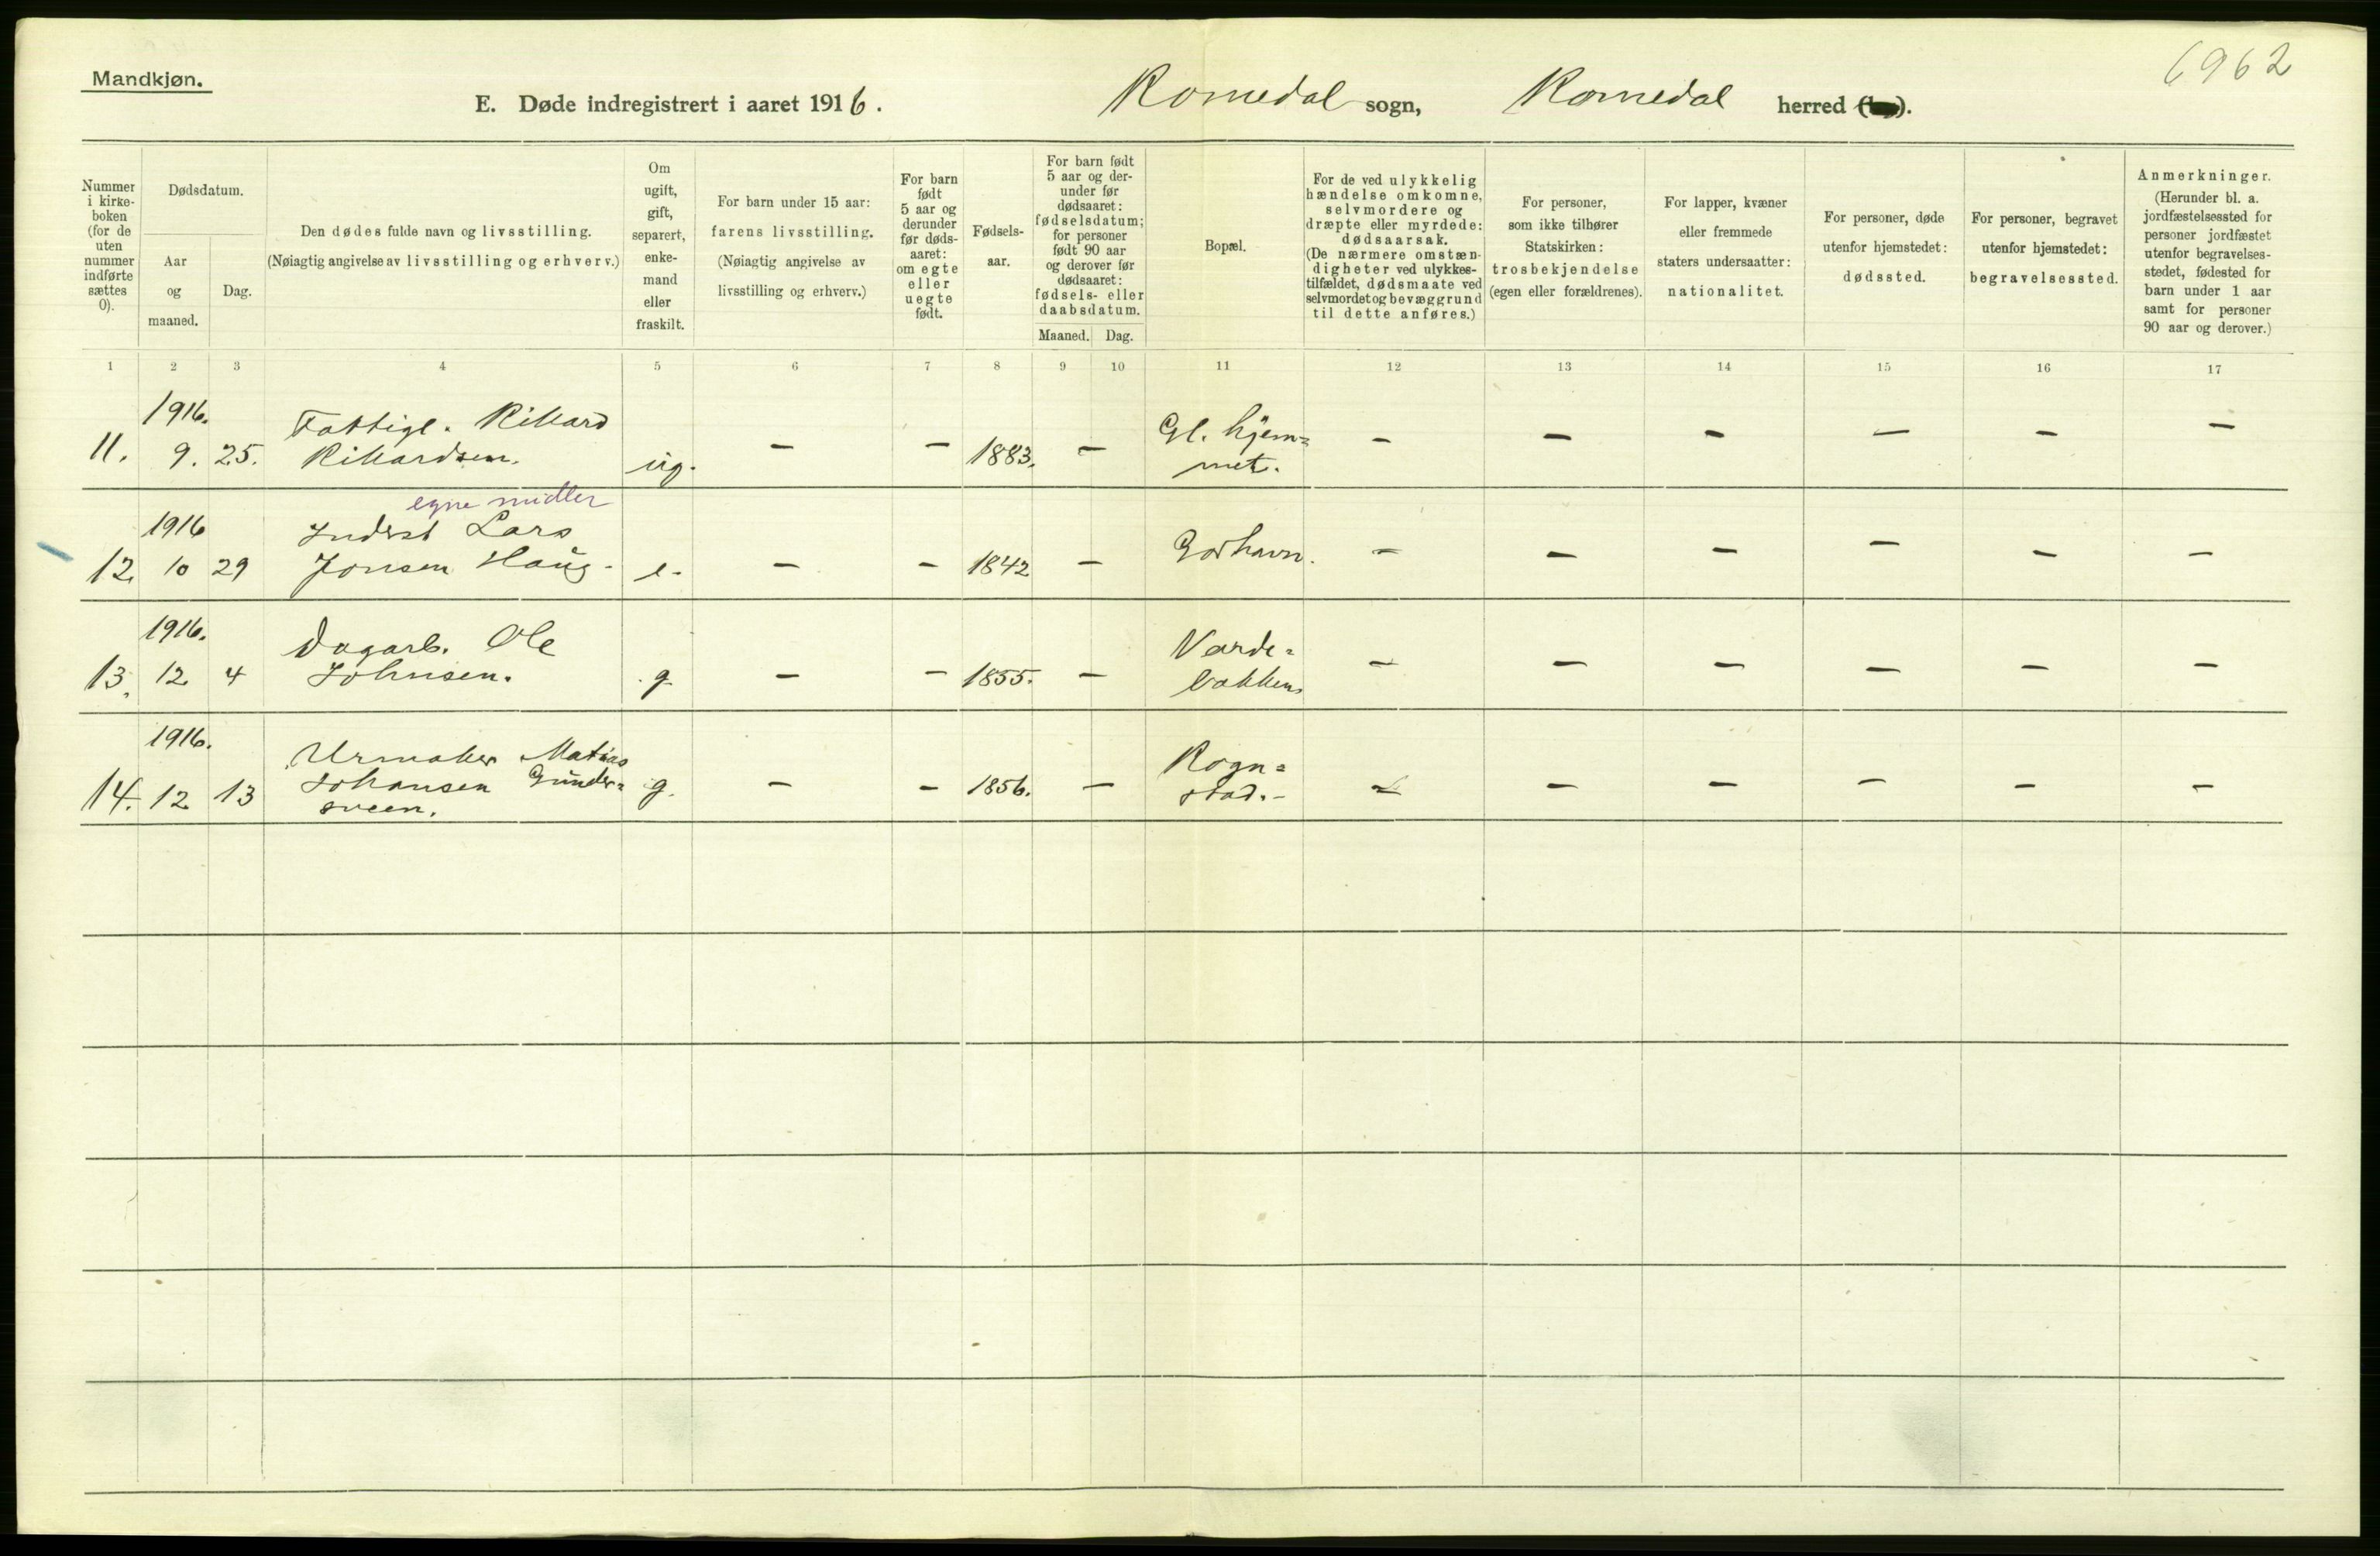 6962
Mandkjøn.
E. Døde indregistrert i aaret 1916. Romedal sogn, Romedal herred
Nummer i kirke-boken (for de uten nummer indførte sættes 0).
Dødsdatum.
Aar og maaned.
Dag.
Den dødes fulde navn og livsstilling.
(Nøiagtig angivelse av livsstilling og erhverv.)
Om ugift, gift, separert, enke-mand eller fraskilt.
For barn under 15 aar:
farens livsstilling.
(Nøiagtig angivelse av
livsstilling og erhverv.)
For barn født 5 aar og derunder før døds-aaret: om egte eller uegte født.
Fødsels-aar.
For barn født 5 aar og der-under før dødsaaret: fødselsdatum; for personer født 90 aar og derover før dødsaaret: fødsels- eller daabsdatum.
Maaned. Dag.
Bopæl.
For de ved ulykkelig hændelse omkomne, selvmordere og dræpte eller myrdede: dødsaarsak. (De nærmere omstæn-digheter ved ulykkes-tilfældet, dødsmaate ved selvmordet og bevæggrund til dette anføres.)
For personer, som ikke tilhører Statskirken: trosbekjendelse (egen eller forældrenes).
For lapper, kvæner eller fremmede staters undersaatter: nationalitet.
For personer, døde utenfor hjemstedet: dødssted.
For personer, begravet utenfor hjemstedet: begravelsessted.
Anmerkninger.
(Herunder bl. a. jordfæstelsessted for personer jordfæstet utenfor begravelses-stedet, fødested for barn under 1 aar samt for personer 90 aar og derover.)
1 2 3 4 5 6 7 8 9 10 11 12 13 14 15 16 17
1916. Fattigl. Rikard Gl. hjem=
11. 9. 25. Rikardsen. ug. - - 1883. - met. - - - - - -
egne midler
1916 Inderst Lars
12. 10 29 Jonsen Haug. e. - - 1842 - Godhavn. - - - - - -
1916. Dagarb. Ole Varde=
13. 12 4 Johnsen. g. - - 1855. - bakken - - - - - -
1916. Urmaker Matias Rogn=
14. 12 13 Johansen Gunder= g. - - 1856. - stad. - - - - - -
sveen.